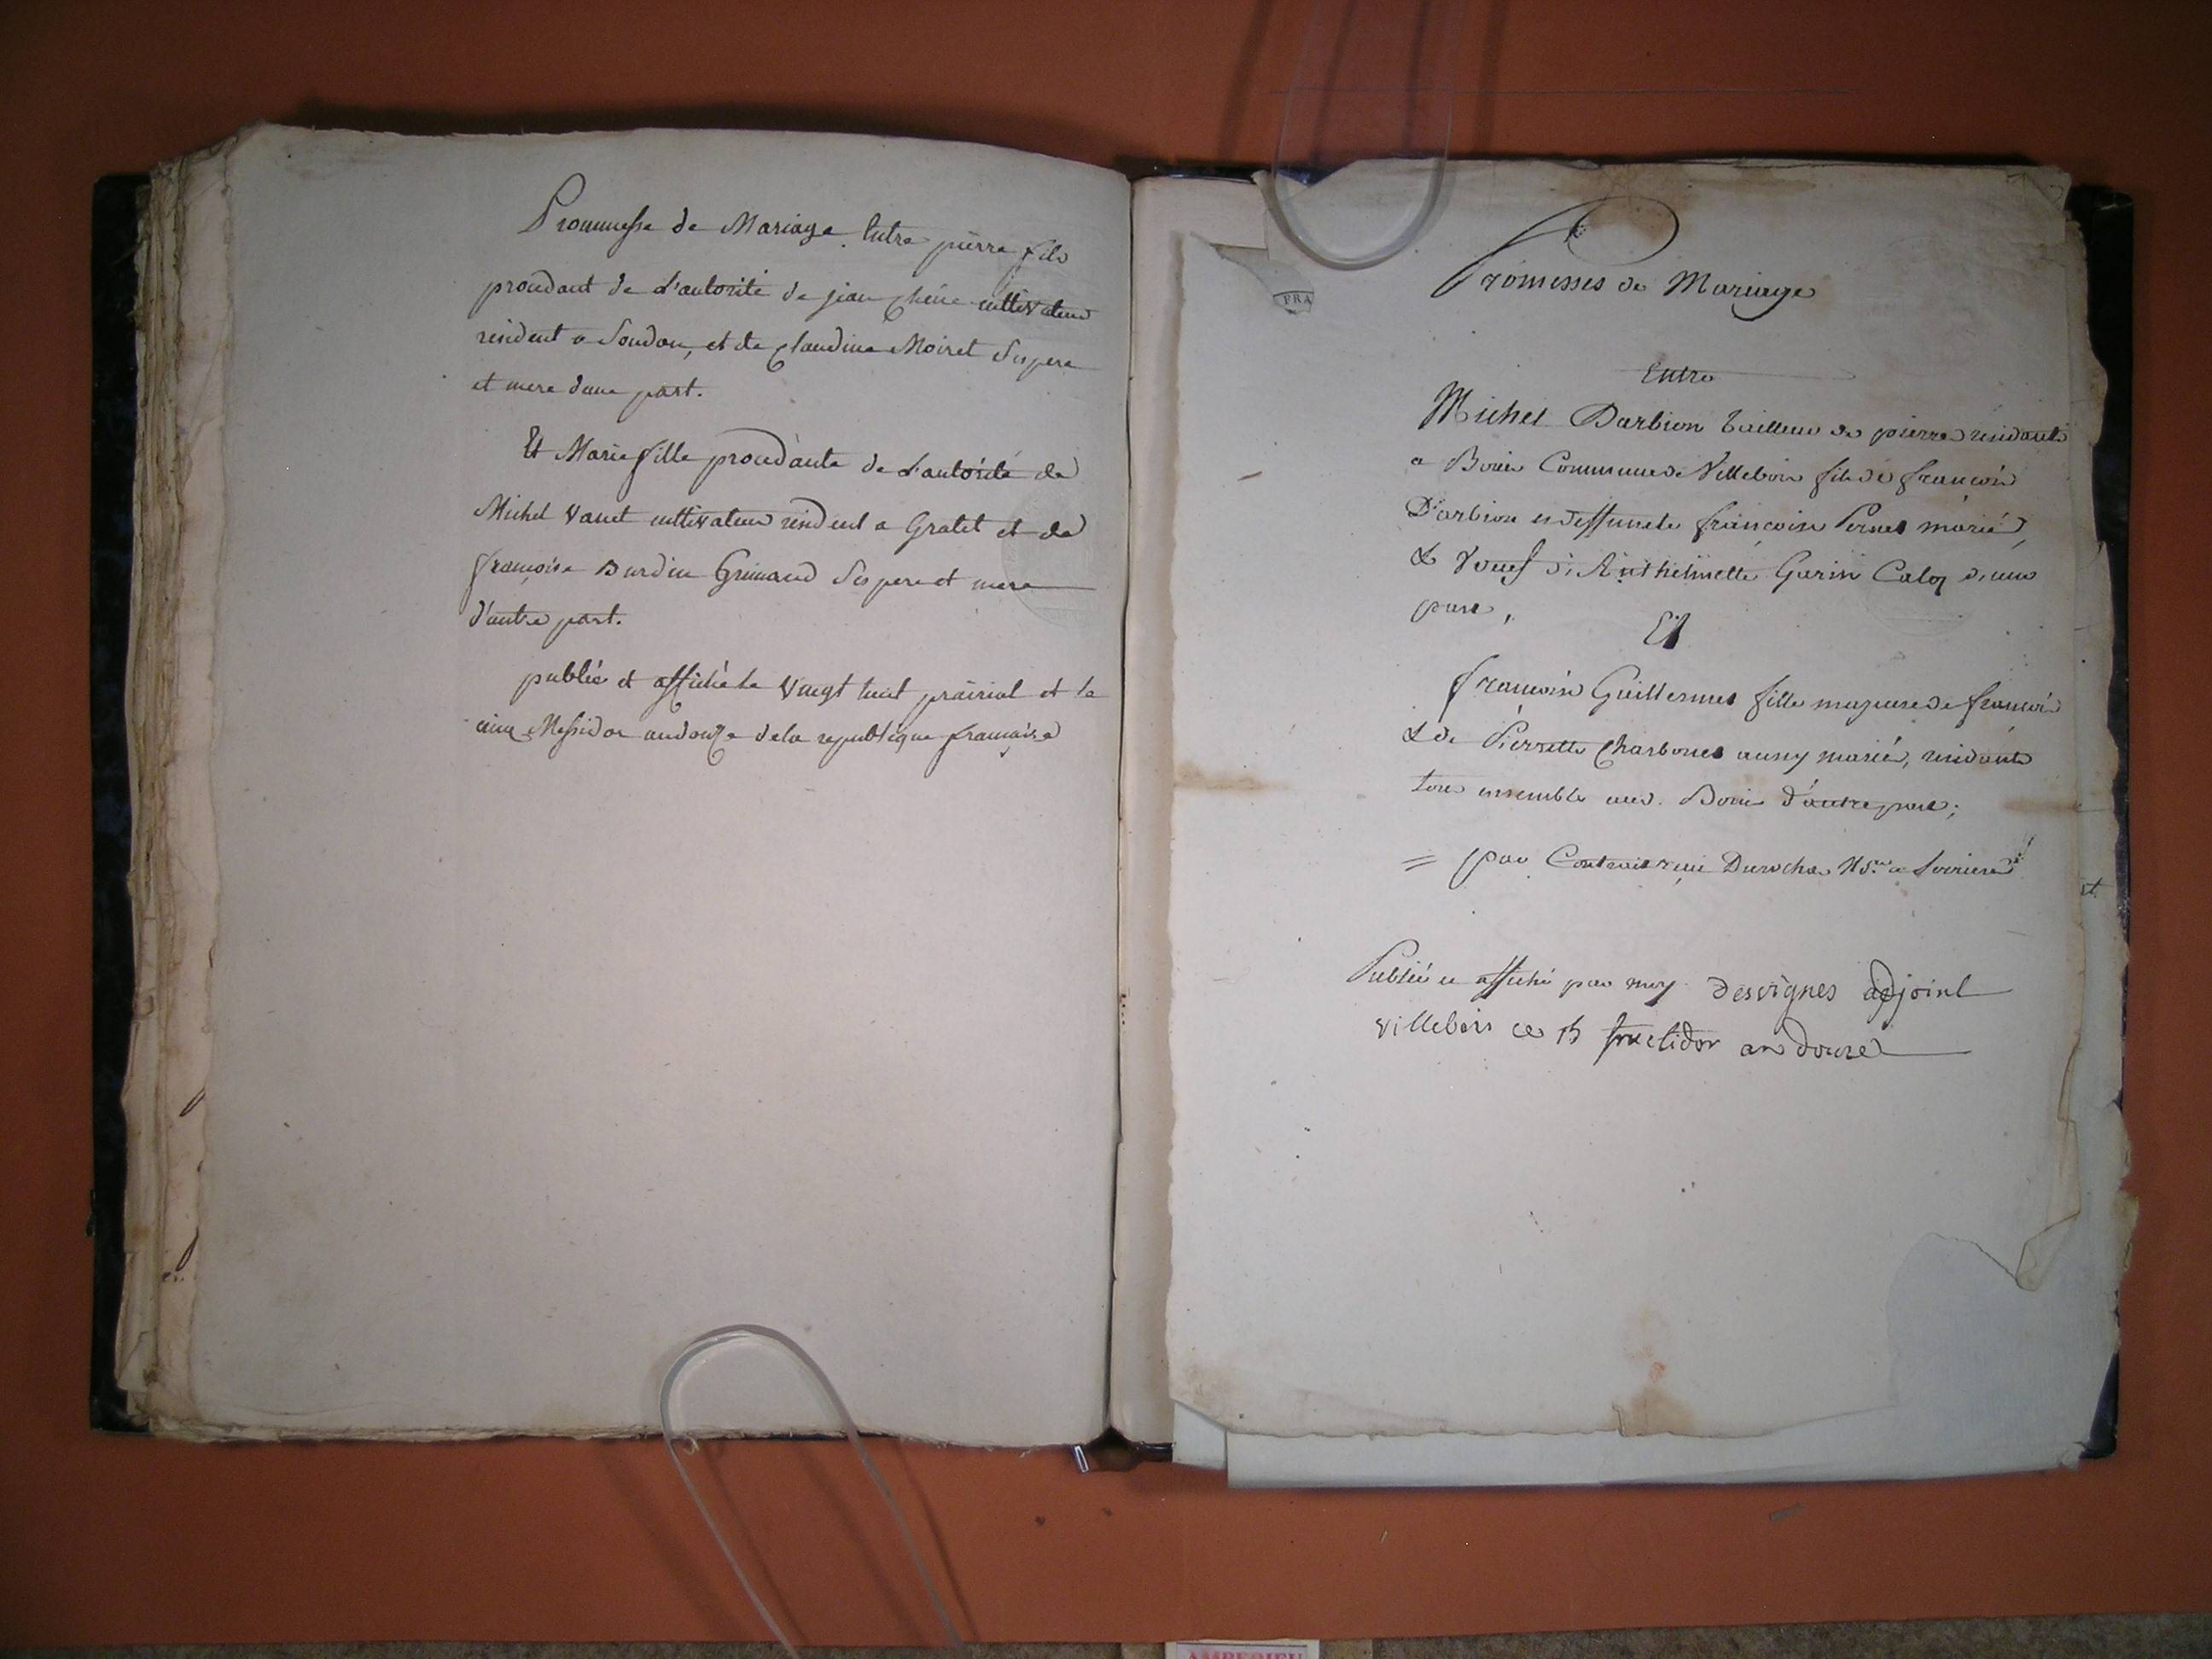 Prommesse de Mariage Entre pierre fils
procedant de L'autorité de jean chêne cultivateur
resident a Soudon, et de Claudine Moiret Ses pere
et mere dune part.
Et Marie fille procedante de L'autorité de
Michel Vanet cultivateur resident a Gratet et de
françoise Burdin Grimaud Ses pere et mere
d'autre part.
publié et affiché le Vingt huit prairial et le
cinq Messidor an douze de la republique française
Promesses de Mariage
Entre
Michel Darbion tailleur de pierre résidant
a Bouis Commune de Villebois fils de françois
Darbion et deffunte françoise Pernet mariés,
& Veuf de Anthelmette Garin Calog d'une
part,
Et
françoise Guillermet fille majeure de françois
& de Pierrette Charbonet aussy mariés, résidants
tous ensemble aud. Bouis d'autre part;
= par Contrait reçu Duroche No.re a Serrieres
Publié et affiché par moy desvignes adjoint
villebois ce 15 fructidor an douze
PRA
et
AMBERIEU